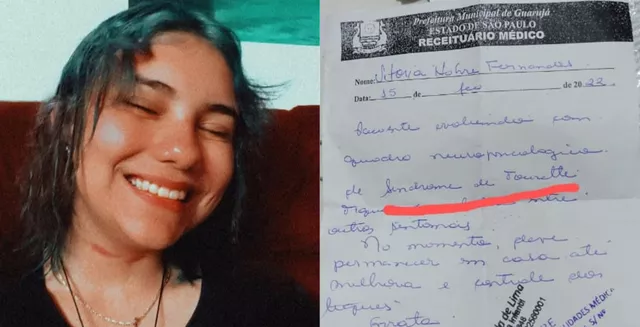 Prefeitura Municipal de Guarujá
ESTADO DE SÃO PAULO
RECEITUÁRIO MÉDICO
Nome: Vitória Nobre Fernandes
Data: 15 de fev de 2022
Paciente evoluindo com
quadro neuropsicológico
de Síndrome de Tourette
outros sintomas.
No momento, deve
permanecer em casa até
melhora e controle dos
tiques.
de Lima